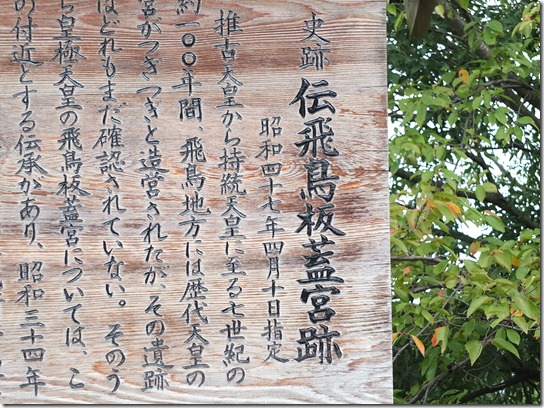 史跡 伝飛鳥板蓋宮跡
昭和四十七年四月十日指定
推古天皇から持統天皇に至る七世紀の
約一〇〇年間、飛鳥地方には歴代天皇の
宮がつぎつぎと造営されたが、その遺跡
はどれもまだ確認されていない。そのう
ち皇極天皇の飛鳥板蓋宮については、こ
の付近とする伝承があり、昭和三十四年